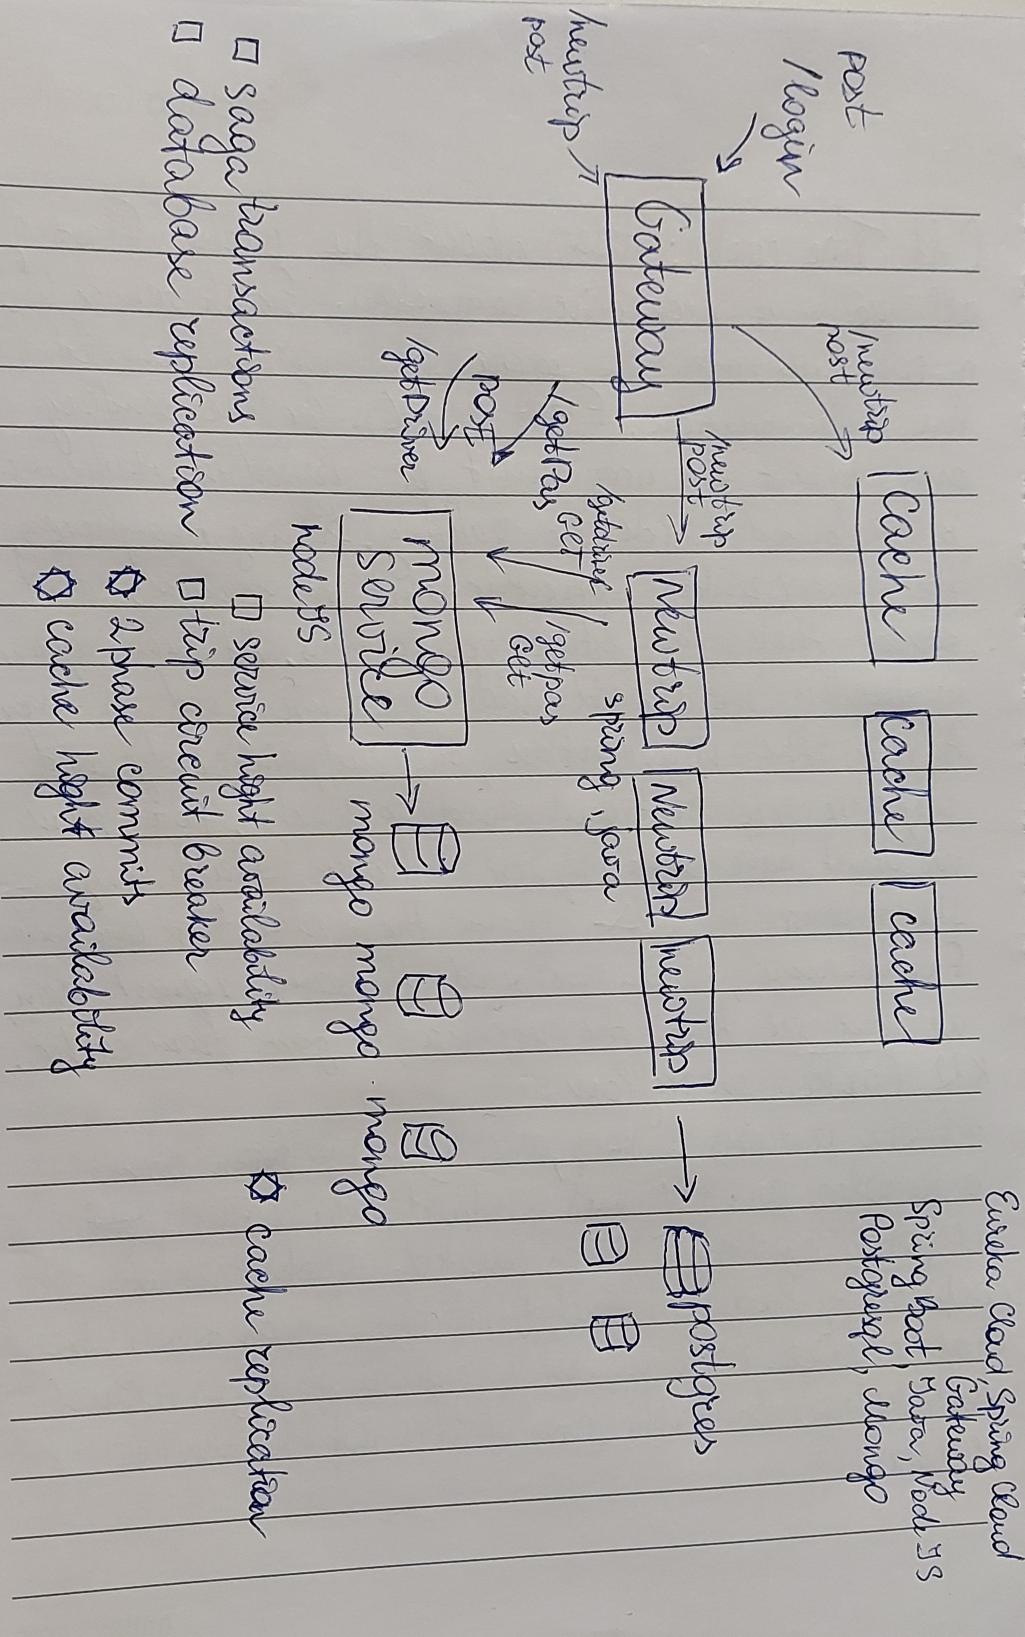 Eureka Cloud, Spring Cloud
Gateway
Spring Boot, Java, Node JS
Postgresql, Mongo
cache
cache
cache
/newtrip
post
post
/login
Gateway
/newtrip
post
/newtrip
post
Newtrip
Newtrip
newtrip
spring, java
postgres
/getdriver
GET
/getpas
Get
/getPas
post
/getDriver
mongo
service
nodeJS
mongo
mongo
mongo
saga transactions
database replication
service hight availability
trip circuit breaker
2phase commits
cache hight availability
cache replication